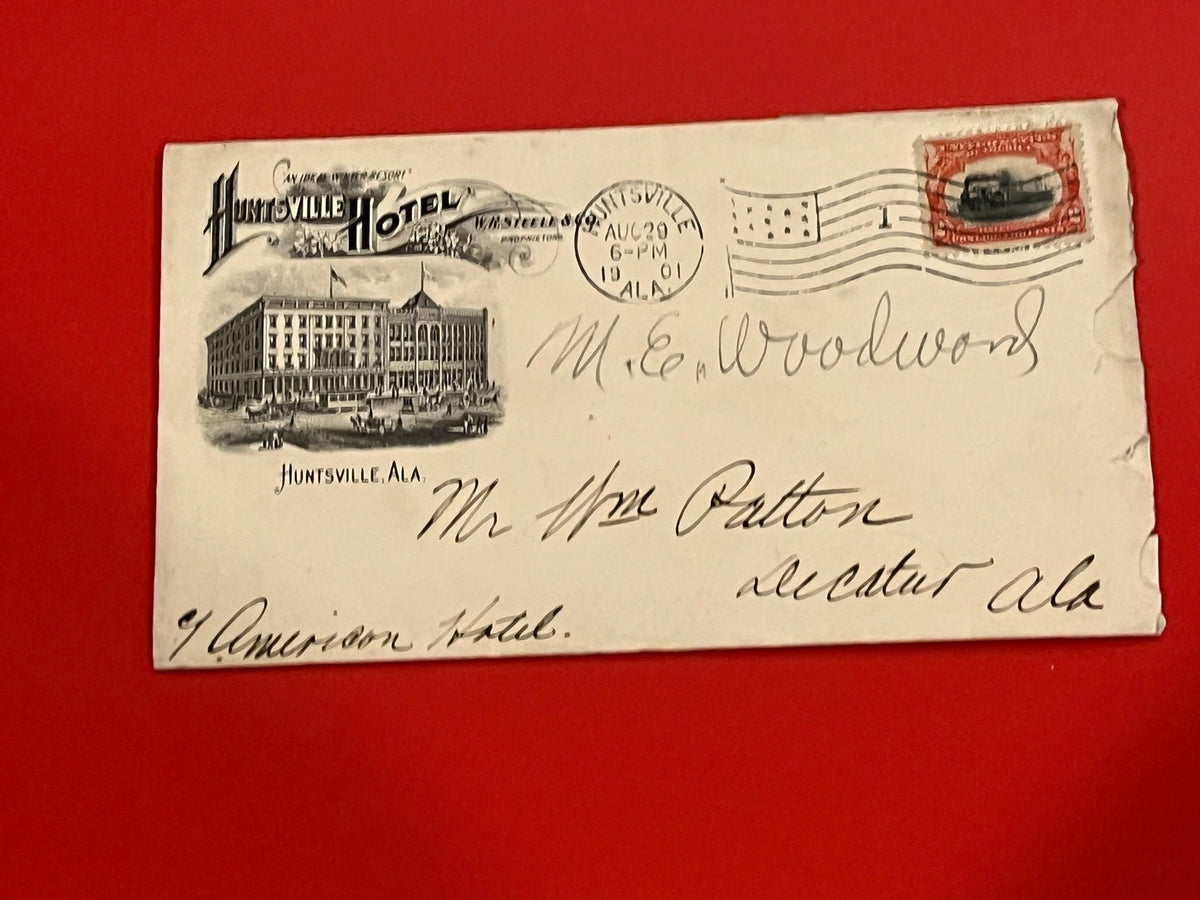 "AN IDEAL WINTER RESORT"
HUNTSVILLE HOTEL
W.H. STEELE & CO.
PROPRIETORS
HUNTSVILLE, ALA.
HUNTSVILLE
AUG 29
6-PM
19 01
ALA.
1
M. E. Woodword
Mr Wm Patton
Decatur Ala
c/ American Hotel.